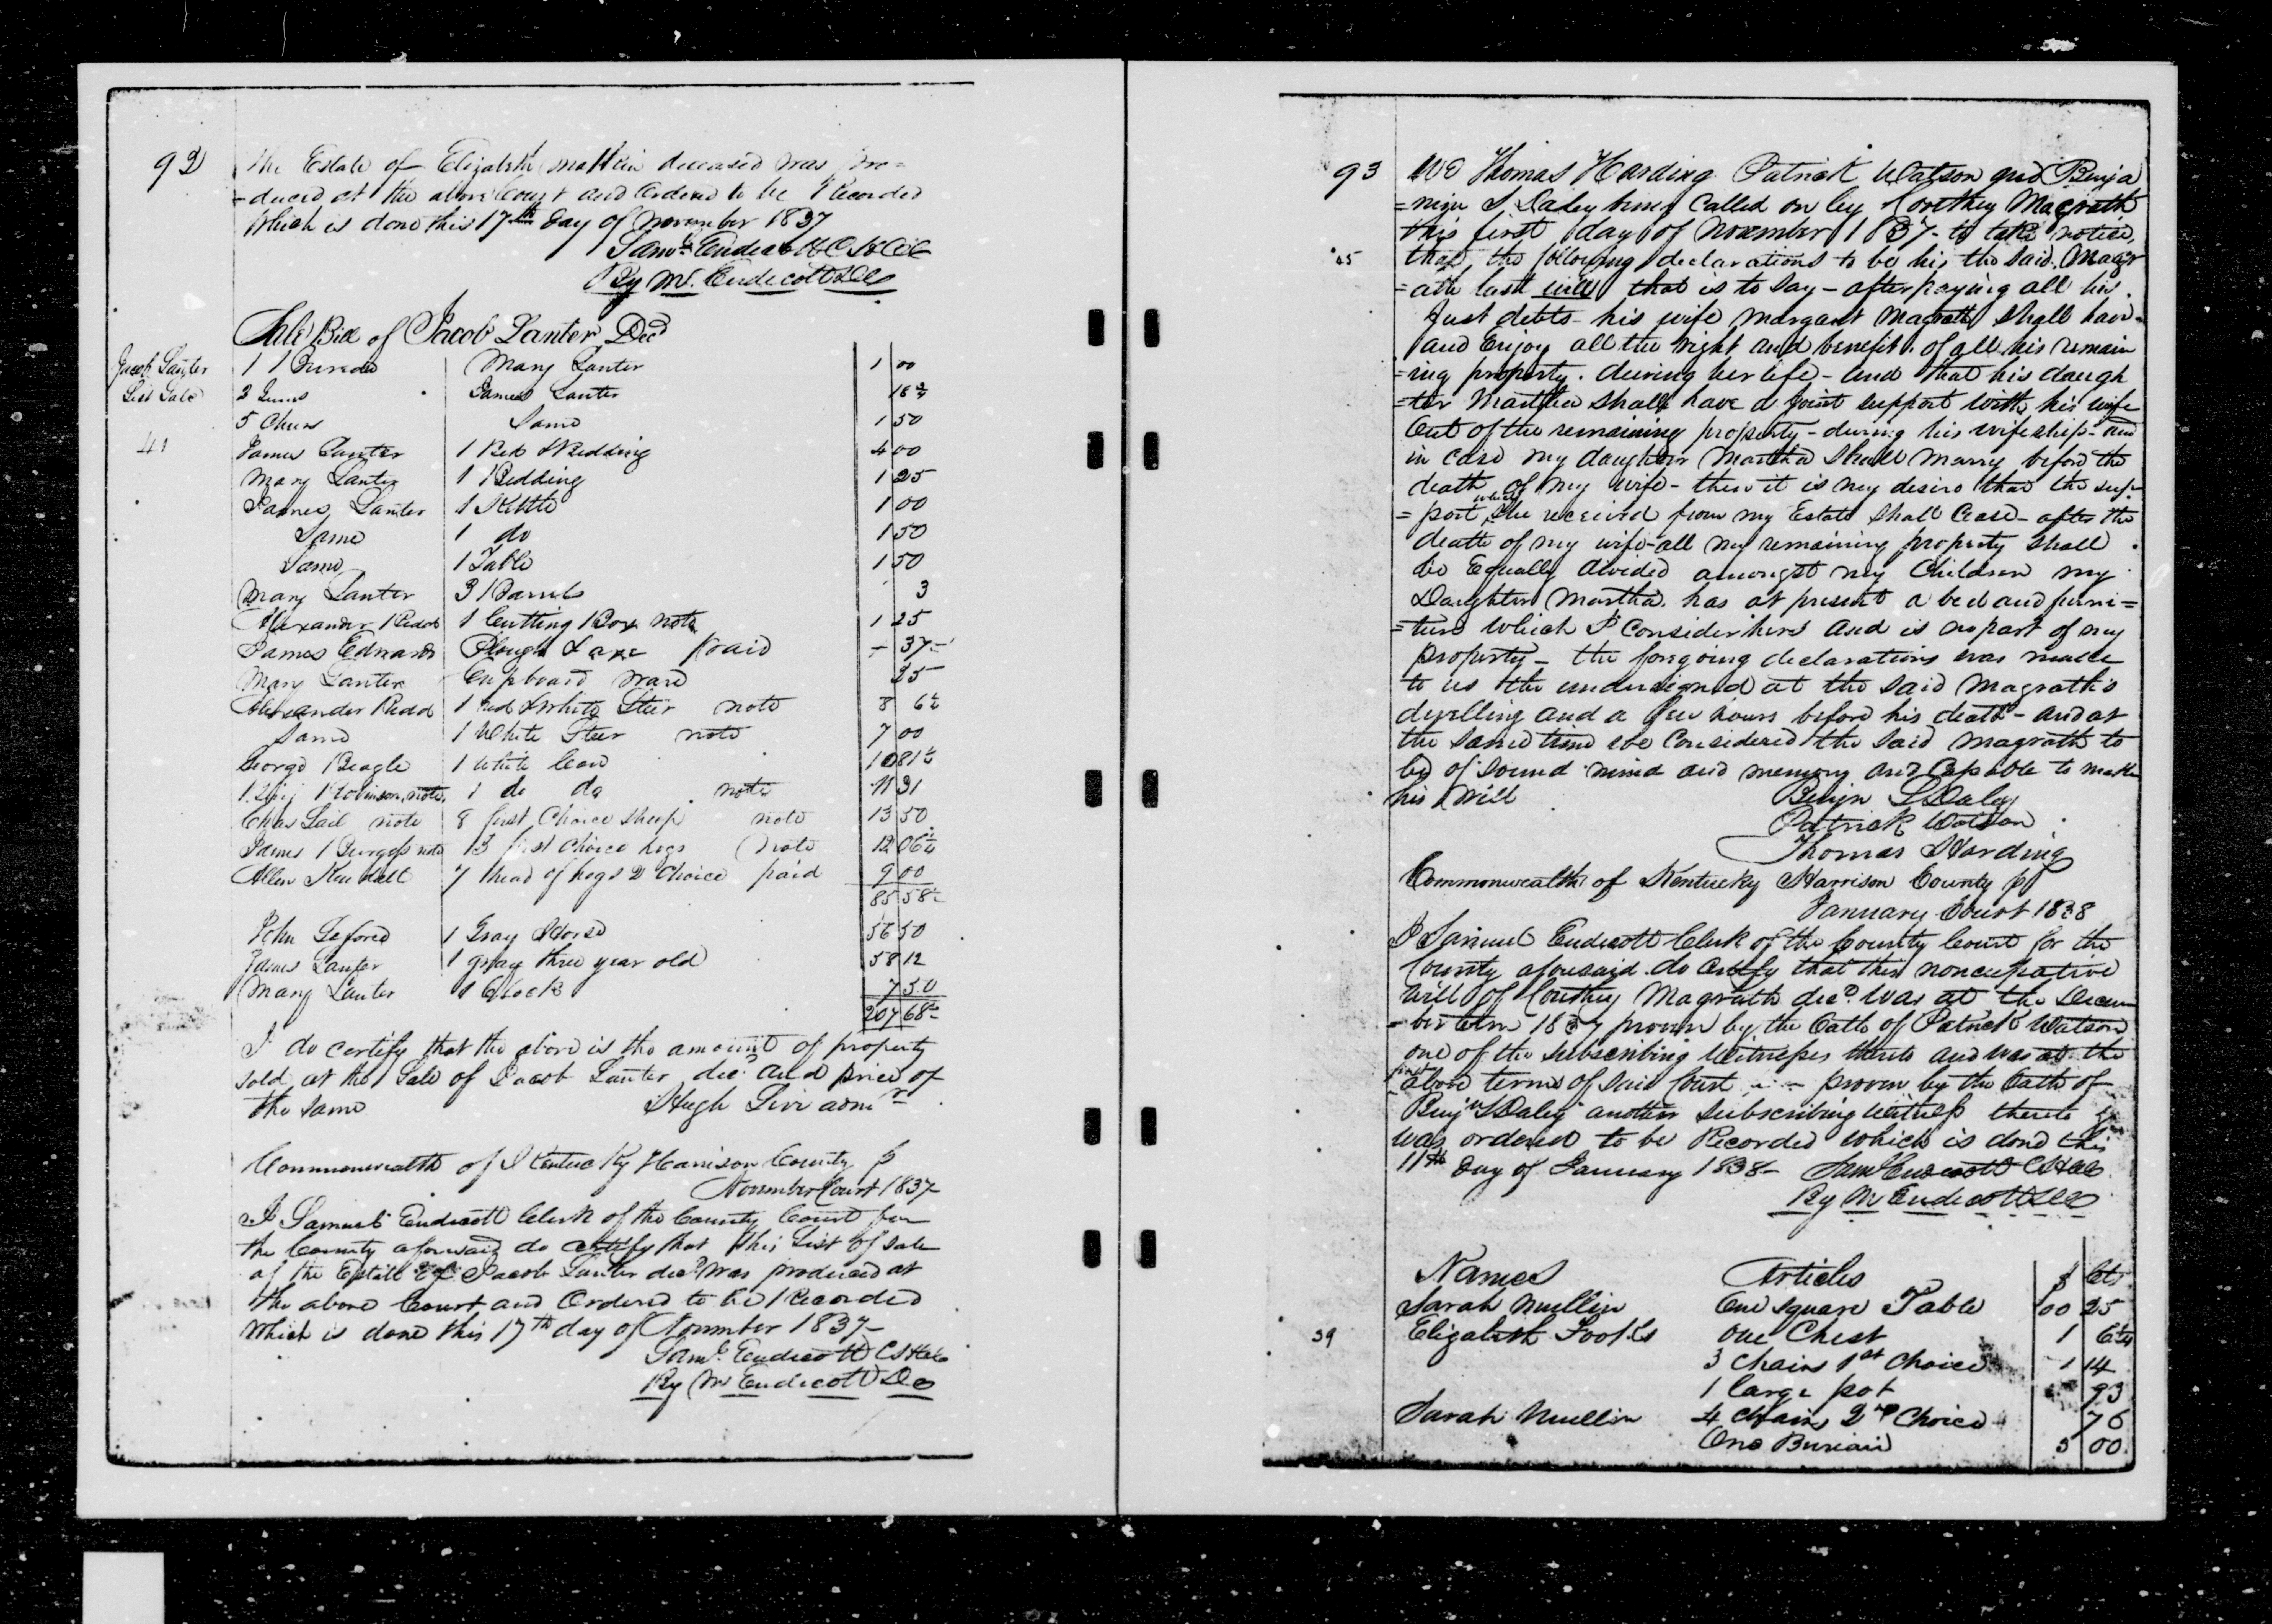 92
The Estate of Elizabeth deceased was pro=
=duced at the above Court and Ordered to be Recorded
Which is done this 17th day of November 1837
Saml. Endicott C H C C
By M. Endicott D C
Sale Bill of Jacob Lanter Decd
Jacob Lanter
List Sale
41
1 Bureau Mary Lanter 1 00
James Lanter 18 3/4
5 Same 1 50
James Lanter 1 Bed & Bedding 4 00
Mary Lanter 1 Bedding 1 25
James Lanter 1 Kettle 1 00
Same 1 do 1 50
Same 1 Table 1 50
Mary Lanter 3 Barrels 3
Alexander Redd 1 Cutting Box note 1 25
James Edwards Plough & axe paid - 37-
Mary Lanter Cupboard ware 25
Alexander Redd 1 red & white Steer note 8 6 1/4
Same 1 White Steer note 7 00
George Beagle 1 white Cow 10 81 1/4
Robinson note 1 do do note 11 31
Chas Lail note 8 first Choice sheep note 13 50
James Burgess note 13 first choice hogs note 12 06 1/4
Allen Kendall 7 head of hogs 2 Choice paid 9 00
85 58 1/2
John 1 Gray Horse 56 50
James Lanter 1 gray three year old 58 12
Mary Lanter 1 Clock 7 50
207 68
I do certify that the above is the amount of property
sold at the Sale of Jacob Lanter decd and price of
the same Hugh admr
Commonwealth of Kentucky Harrison County
November Court 1837-
I Samuel Endicott Clerk of the County Court for
the County aforesaid do certify that this List of sale
of the Estate of Jacob Lanter decd was produced at
the above Court and Ordered to be Recorded
Which is done this 17th day of November 1837-
Saml. Endicott C H C C
By M Endicott D C
93
We Thomas Harding Patrick Watson and Benja
=min S Daley being Called on by Magrath
this first day of November 1837- to take notice,
45
that the following declarations to be his the said Magr
=ath last will that is to say - after paying all his
Just debts - his wife Margaret Magrath shall have
and Enjoy all the right and benefit of all his remain
=ing property. during her life - and that his daugh
=ter Martha shall have a joint support with his wife
Out of the remaining property - during his wifeship - and
in case my daughter Martha shall Marry before the
death of my wife - then it is my desire that the sup=
=port which she received from my Estate shall Cease - after the
death of my wife - all my remaining property shall
be Equally divided amongst my Children my
Daughter Martha has at present a bed and furni=
=ture which I consider hers and is no part of my
property - the foregoing declarations was made
to us the undersigned at the said Magrath's
dwelling and a few hours before his death - and at
the same time we Considered the said Magrath to
be of sound mind and memory and Capable to make
his Will Benjn S Daley
Patrick Watson
Thomas Harding
Commonwealth of Kentucky Harrison County
January Court 1838
I Samuel Endicott Clerk of the County Court for the
County aforesaid do certify that this noncupative
will of Magrath decd. Was at the Decem
=ber term 1837 proven by the Oath of Patrick Watson
one of the subscribing Witnesses thereto and was at the
above terms of said Court proven by the Oath of
Benjn S Daley another subscribing Witness thereto &
was ordered to be Recorded which is done this
11th day of January 1838- Saml Endicott C H C C
By M Endicott D C
Names Articles $ Cts
Sarah Mullin One square Table 00 25
39
Elizabeth One Chest 1 6 1/4
3 Chairs 1st Choice 1 14
1 large pot 93
Sarah Mullin 4 Chairs 2nd Choice 76
One Bureau 5 00